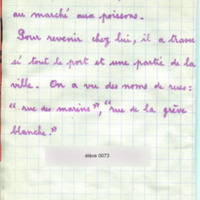 au marché aux poissons.
Pour revenir chez lui, il a traver
sé tout le port et une partie de la
ville. On a vu des noms de rues:
"rue des marins", "rue de la grève
blanche."
élève 0073